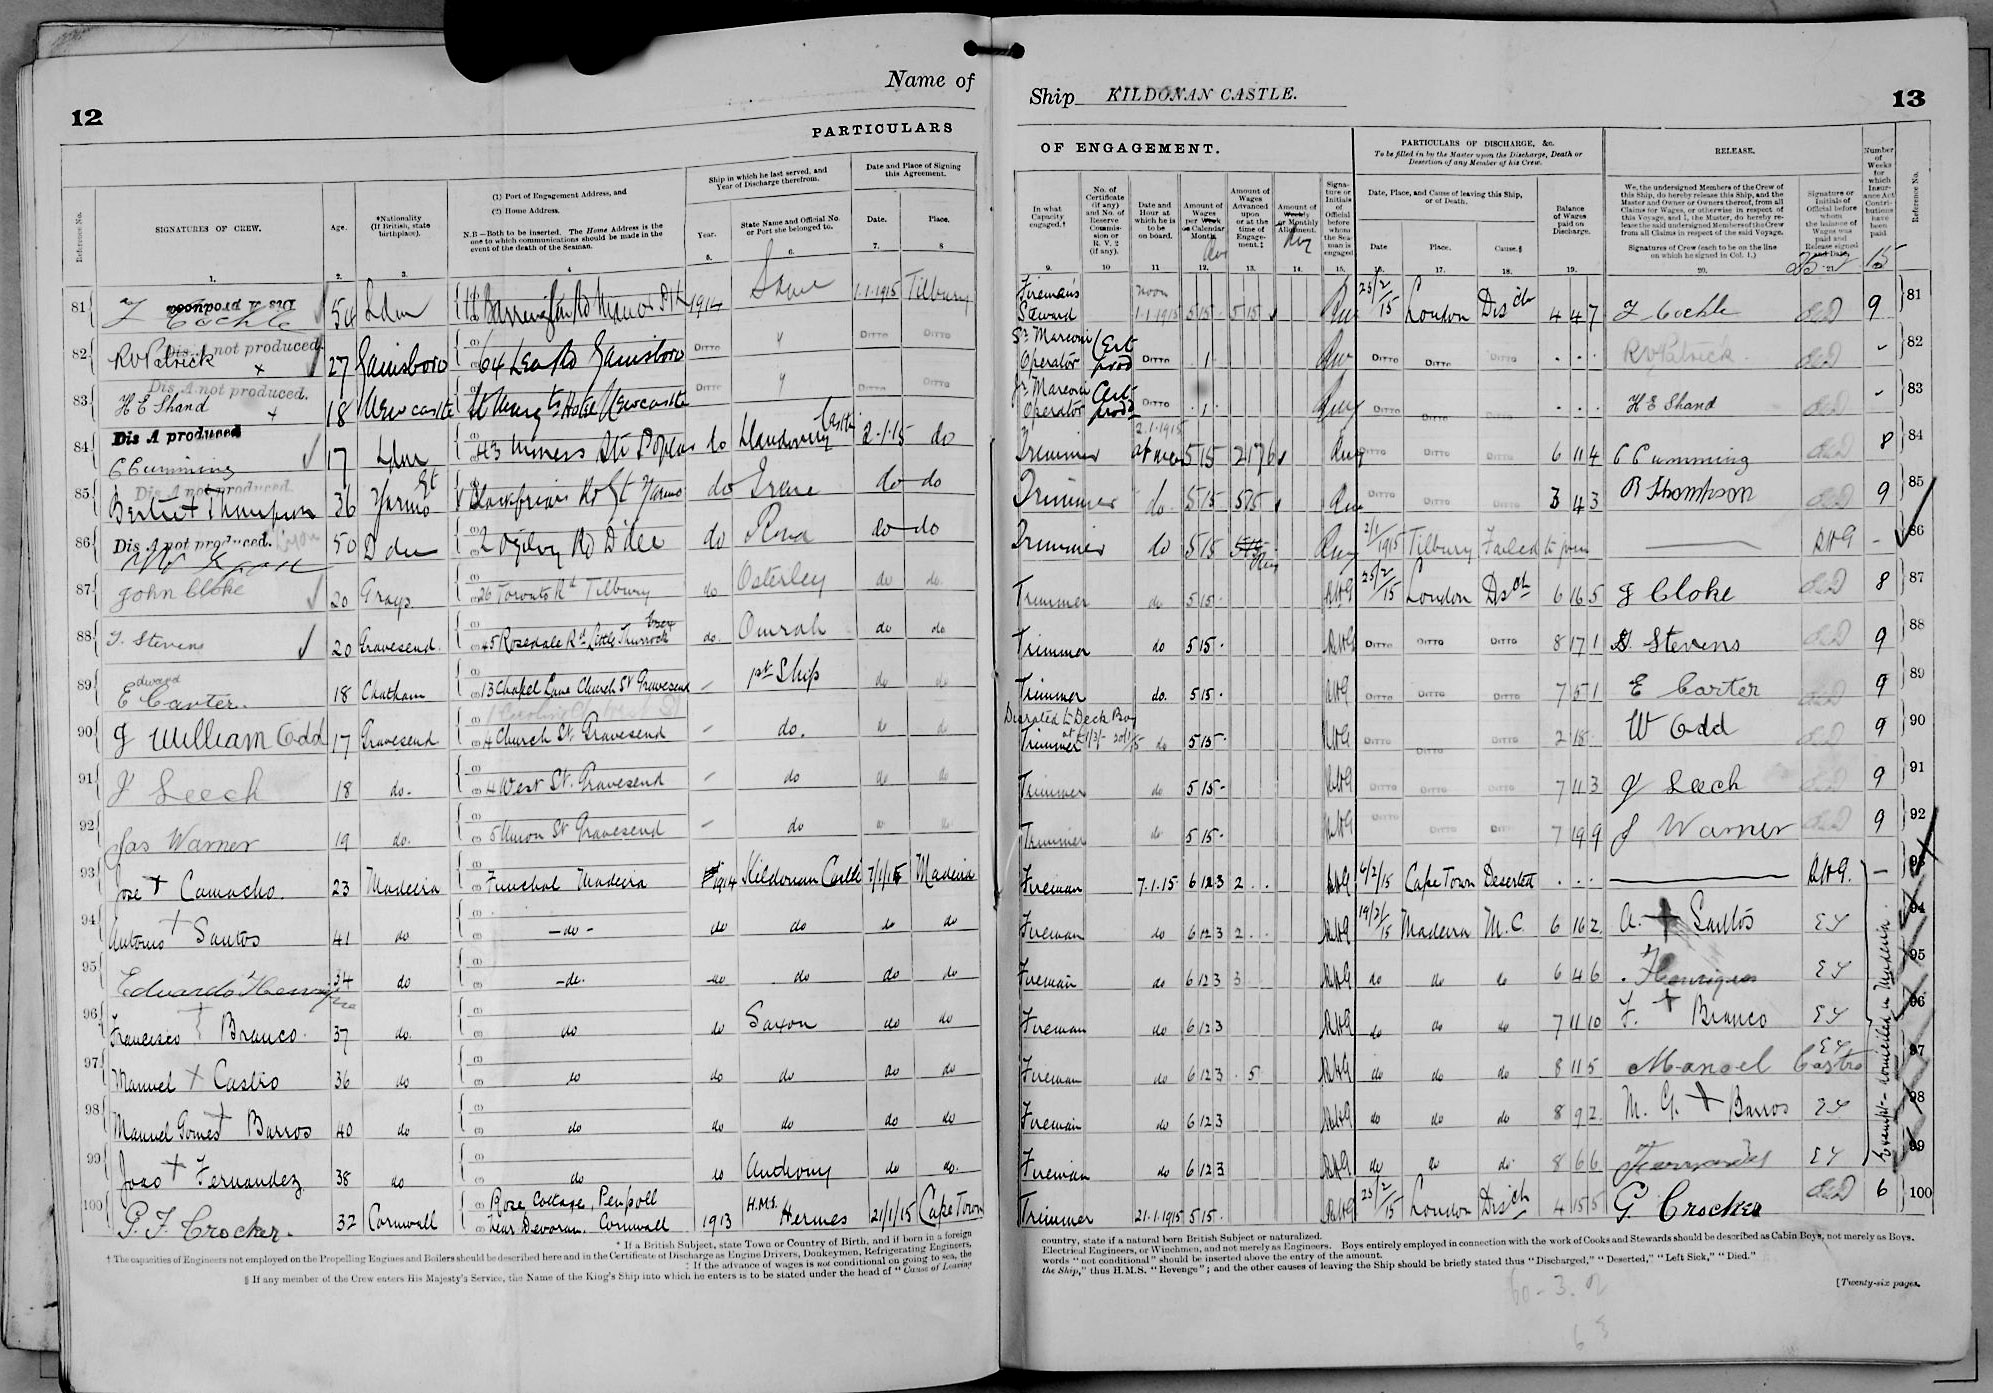 Name of
12
PARTICULARS
Reference No.
SIGNATURES OF CREW.
Age.
*Nationality (If British, state birthplace).
(1) Port of Engagement Address, and
(2) Home Address.
N.B—Both to be inserted. The Home Address is the one to which communications should be made in the event of the death of the Seaman.
Ship in which he last served, and Year of Discharge therefrom.
Year.
State Name and Official No. or Port she belonged to.
Date and Place of Signing this Agreement.
Date.
Place.
1. 2. 3. 4 5. 6. 7. 8
81 Dis A produced
F Cockle 54 Ldn Barrington Rd Manor Pk 1914 Same 1.1.1915 Tilbury
82 Dis. A not produced.
R V Patrick x 27 Gainsboro 64 Lea Rd Gainsboro DITTO DITTO DITTO
83 Dis. A not produced.
H E Shand + 18 Newcastle Hotel Newcastle DITTO DITTO DITTO
84 Dis A produced
C Cumming 17 Ldn 43 Poplar do Llandovery Castle 2.1.15 do
85 Dis. A not produced.
Bertie + Thompson 36 Gt Yarmo Blackfriars Rd Gt Yarmo do do do
86 Dis. A not produced.
50 D dee 2 Ogilvy Rd D dee do do do
87 John Cloke 20 Grays 26 Toronto Rd Tilbury do Osterley do do.
88 T. Stevens 20 Gravesend. 45 Rosedale Rd Little Thurrock Essex do. Omrah do do
89 Edward Carter. 18 Chatham 13 Chapel Lane Church St Gravesend – 1st Ship do do
90 J William Odd 17 Gravesend 4 Church St Gravesend – do. do do
91 J Leech 18 do. 4 West St. Gravesend – do do do
92 Jas Warner 19 do. 5 Union St Gravesend – do do do
93 Jose + Camacho. 23 Madeira Funchal Madeira 1914 Kildonan Castle 7/1/15 Madeira
94 Antonio + Santos 41 do –do– do do do do
95 Eduardo Henriques 34 do –do– do do do do
96 Francisco + Branco. 37 do. do do Saxon do do
97 Manuel + Castro 36 do do do do do do
98 Manuel Gomes + Barros 40 do do do do do do
99 Joao + Fernandez 38 do do do Andhony do do.
100 P. F. Crocker. 32 Cornwall Rose Cottage, Penpoll near Devoran. Cornwall 1913 H.M.S. Hermes 21/1/15 Cape Town
* If a British Subject, state Town or Country of Birth, and if born in a foreign
† The capacities of Engineers not employed on the Propelling Engines and Boilers should be described here and in the Certificate of Discharge as Engine Drivers, Donkeymen, Refrigerating Engineers,
‡ If the advance of wages is not conditional on going to sea, the
§ If any member of the Crew enters His Majesty's Service, the Name of the King's Ship into which he enters is to be stated under the head of "Cause of Leaving
Ship KILDONAN CASTLE.
13
OF ENGAGEMENT.
PARTICULARS OF DISCHARGE, &c.
To be filled in by the Master upon the Discharge, Death or Desertion of any Member of his Crew.
RELEASE.
In what Capacity engaged.†
No. of Certificate (if any) and No. of Reserve Commission or R.V. 2 (if any).
Date and Hour at which he is to be on board.
Amount of Wages per Week or Calendar Month.
Amount of Wages Advanced upon or at the time of Engagement.‡
Amount of Weekly or Monthly Allotment.
Signature or Initials of Official before whom the Seaman is engaged
Date, Place, and Cause of leaving this Ship, or of Death.
Date
Place.
Cause.§
Balance of Wages paid on Discharge.
We, the undersigned Members of the Crew of this Ship, do hereby release this Ship, and the Master and Owner or Owners thereof, from all Claims for Wages, or otherwise in respect of this Voyage, and I, the Master, do hereby release the said undersigned Members of the Crew from all Claims in respect of the said Voyage.
Signatures of Crew (each to be on the line on which he signed in Col. 1.)
Signature or Initials of Official before whom the balance of Wages was paid and Release signed and Date.
Number of Weeks for which Insurance Act Contributions have been paid
Reference No.
9. 10 11 12. 13. 14. 15. 16. 17. 18. 19. 20. 21. 15
Fireman's Steward noon 1.1.1915 5 15 5 15 25/2/15 London Disch 4 4 7 F Cockle 9 81
Sr. Marconi Operator Cert prod DITTO 1 DITTO DITTO DITTO . . . R V Patrick – 82
Jr. Marconi Operator Cert prod DITTO 1 DITTO DITTO DITTO . . . H E Shand – 83
Trimmer 2.1.1915 5 15 2 17 6 DITTO DITTO DITTO 6 11 4 C Cumming 8 84
Trimmer do 5 15 5 15 DITTO DITTO DITTO 3 4 3 B Thompson 9 85
Trimmer do 5 15 5 15 2/1/1915 Tilbury Failed to join – 86
Trimmer do 5 15 25/2/15 London Disch 6 16 5 J Cloke 8 87
Trimmer do 5 15 DITTO DITTO DITTO 8 17 1 Stevens 9 88
Trimmer do. 5 15 DITTO DITTO DITTO 7 5 1 E Carter 9 89
Disrated to Deck Boy
Trimmer do 5 15 DITTO DITTO DITTO 2 18 W Odd 9 90
Trimmer do 5 15 DITTO DITTO DITTO 7 11 3 J Leech 9 91
Trimmer do 5 15 DITTO DITTO DITTO 7 19 9 J Warner 9 92
Fireman 7.1.15 6 12 3 2 . . 6/2/15 Cape Town Deserted . . . – 93
Fireman do 6 12 3 2 . . 19/2/15 Madeira M.C 6 16 2 A. + Santos 94
Fireman do 6 12 3 3 do do do 6 4 6 Henriques 95
Fireman do 6 12 3 do do do 7 11 10 F. + Branco 96
Fireman do 6 12 3 . 5 do do do 8 11 5 Manoel Castro 97
Fireman do 6 12 3 do do do 8 9 2 M. G. + Barros 98
Fireman do 6 12 3 do do do 8 6 6 Fernandes 99
Trimmer 21.1.1915 5 15 25/2/15 London Disch 4 15 5 G. Crocker 6 100
Exempt – domiciled in Madeira.
country, state if a natural born British Subject or naturalized.
Electrical Engineers, or Winchmen, and not merely as Engineers. Boys entirely employed in connection with the work of Cooks and Stewards should be described as Cabin Boys, not merely as Boys.
words "not conditional" should be inserted above the entry of the amount.
the Ship," thus H.M.S. "Revenge"; and the other causes of leaving the Ship should be briefly stated thus "Discharged," "Deserted," "Left Sick," "Died."
[Twenty-six pages.